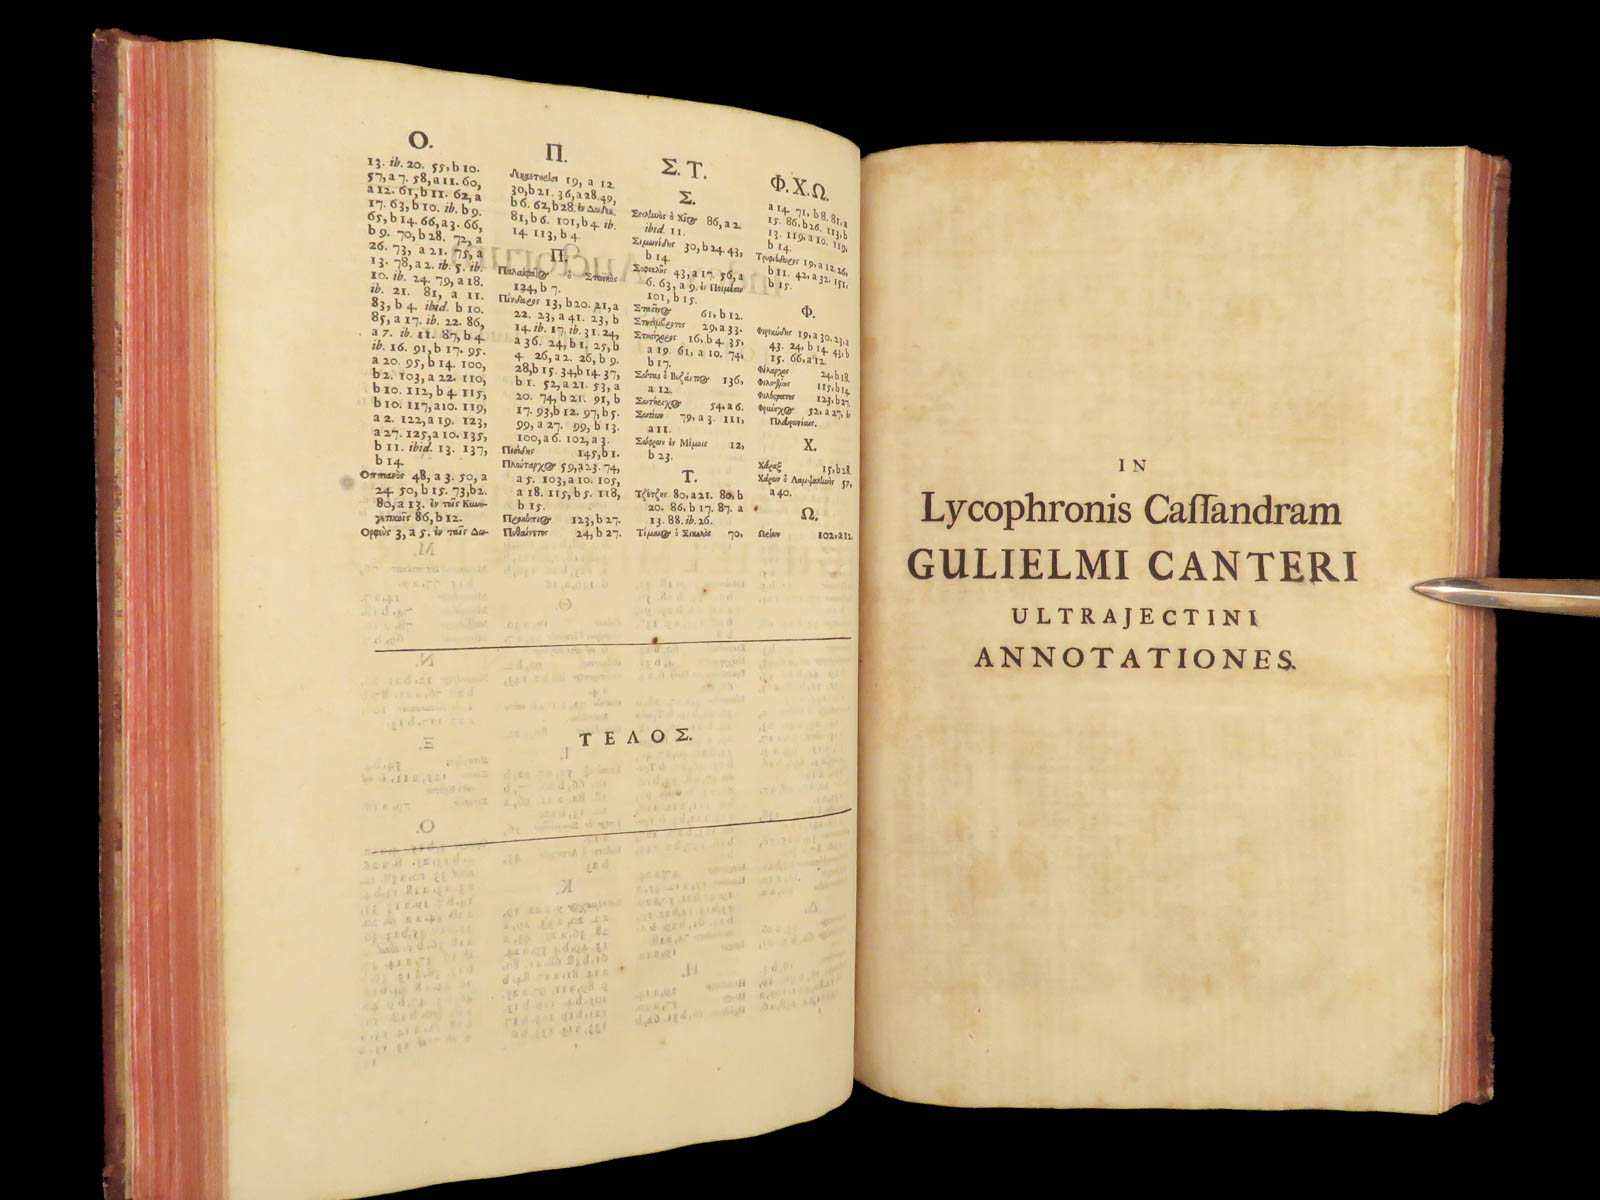 Ο.
13. ib. 20. 55, b 10.
57, a 7. 58, a 11. 60,
a 12. 61, b 11. 62, a
17. 63, b 10. ib. b 9.
65, b 14. 66, a 3. 66,
b 9. 70, b 28. 72, a
26. 73, a 21. 75, a
13. 78, a 2. ib. 5. ib.
10. ib. 24. 79, a 18.
ib. 21. 81, a 11.
83, b 4. ibid. b 10.
85, a 17. ib. 22. 86,
a 7. ib. 11. 87, b 4.
ib. 16. 91, b 17. 95.
a 20. 95, b 14. 100,
b 2. 103, a 22. 110,
b 10. 112, b 4. 115,
b 10. 117, a 10. 119,
a 2. 122, a 19. 123,
a 27. 125, a 10. 135,
b 11. ibid. 13. 137,
b 14.
Οππιανὸς 48, a 3. 50, a
24. 50, b 15. 73, b 2.
80, a 13. ἐν τοῖς Κυνη-
γετικοῖς 86, b 12.
Ορφεὺς 3, a 5. ἐν τοῖς Δω-
Π.
19, a 12.
30, b 21. 36, a 28. 49,
b 6. 62, b 28. ἐν
81, b 6. 101, b 4. ib.
14. 113, b 4.
Π.
Παλαίφατος ὁ Στωικὸς
124, b 7.
Πίνδαρος 13, b 20. 21, a
22. 23, a 41. 23, b
14. ib. 17. ib. 31. 24,
a 36. 24, b 1. 25, b
4. 26, a 2. 26, b 9.
28, b 15. 34, b 14. 37,
b 1. 52, a 21. 53, a
20. 74, b 21. 91, b
17. 93, b 12. 97, b 5.
99, a 27. 99, b 13.
100, a 6. 102, a 3.
145, b 1.
Πλούταρχος 59, a 23. 74,
a 5. 103, a 10. 105,
a 18. 115, b 5. 118,
b 15.
123, b 27.
24, b 27.
Σ. Τ.
Σ.
ὁ Χῖος 86, a 2.
ibid. 11.
Σιμωνίδης 30, b 24. 43,
b 14.
Σοφοκλῆς 43, a 17. 56, a
6. 63, a 9. ἐν Ποιμέσιν
101, b 15.
61, b 12.
29, a 33.
Στησίχορος 16, b 4. 35,
a 19. 61, a 10. 74,
b 17.
ὁ Βυζάντιος 136,
a 12.
54, a 6.
79, a 3. 111,
a 11.
Σώφρων ἐν Μίμοις 12,
b 23.
Τ.
Τζέτζης 80, a 21. 80, b
20. 86, b 17. 87. a
13. 88. ib. 26.
Τίμαιος ὁ Σικελὸς 70,
Φ. Χ. Ω.
a 14. 71, b 8. 81, a
15. 86, b 26. 113, b
13. 119, a 10. 119,
b 14.
19, a 12. 26,
b 11. 42, a 32. 151,
b 15.
Φ.
19, a 30. 23, a
43. 24, b 14. 43, b
15. 66, a 12.
Φύλαρχος 24, b 18.
115, b 14.
Φιλόστρατος 123, b 27.
52, a 27, ἐν
Χ.
Χάραξ 15, b 28.
Χάρων ὁ Λαμψακηνὸς 57,
a 40.
Ω.
Ωρίων 102, a 12.
ΤΕΛΟΣ.
IN
Lycophronis Caſſandram
GULIELMI CANTERI
ULTRAJECTINI
ANNOTATIONES.